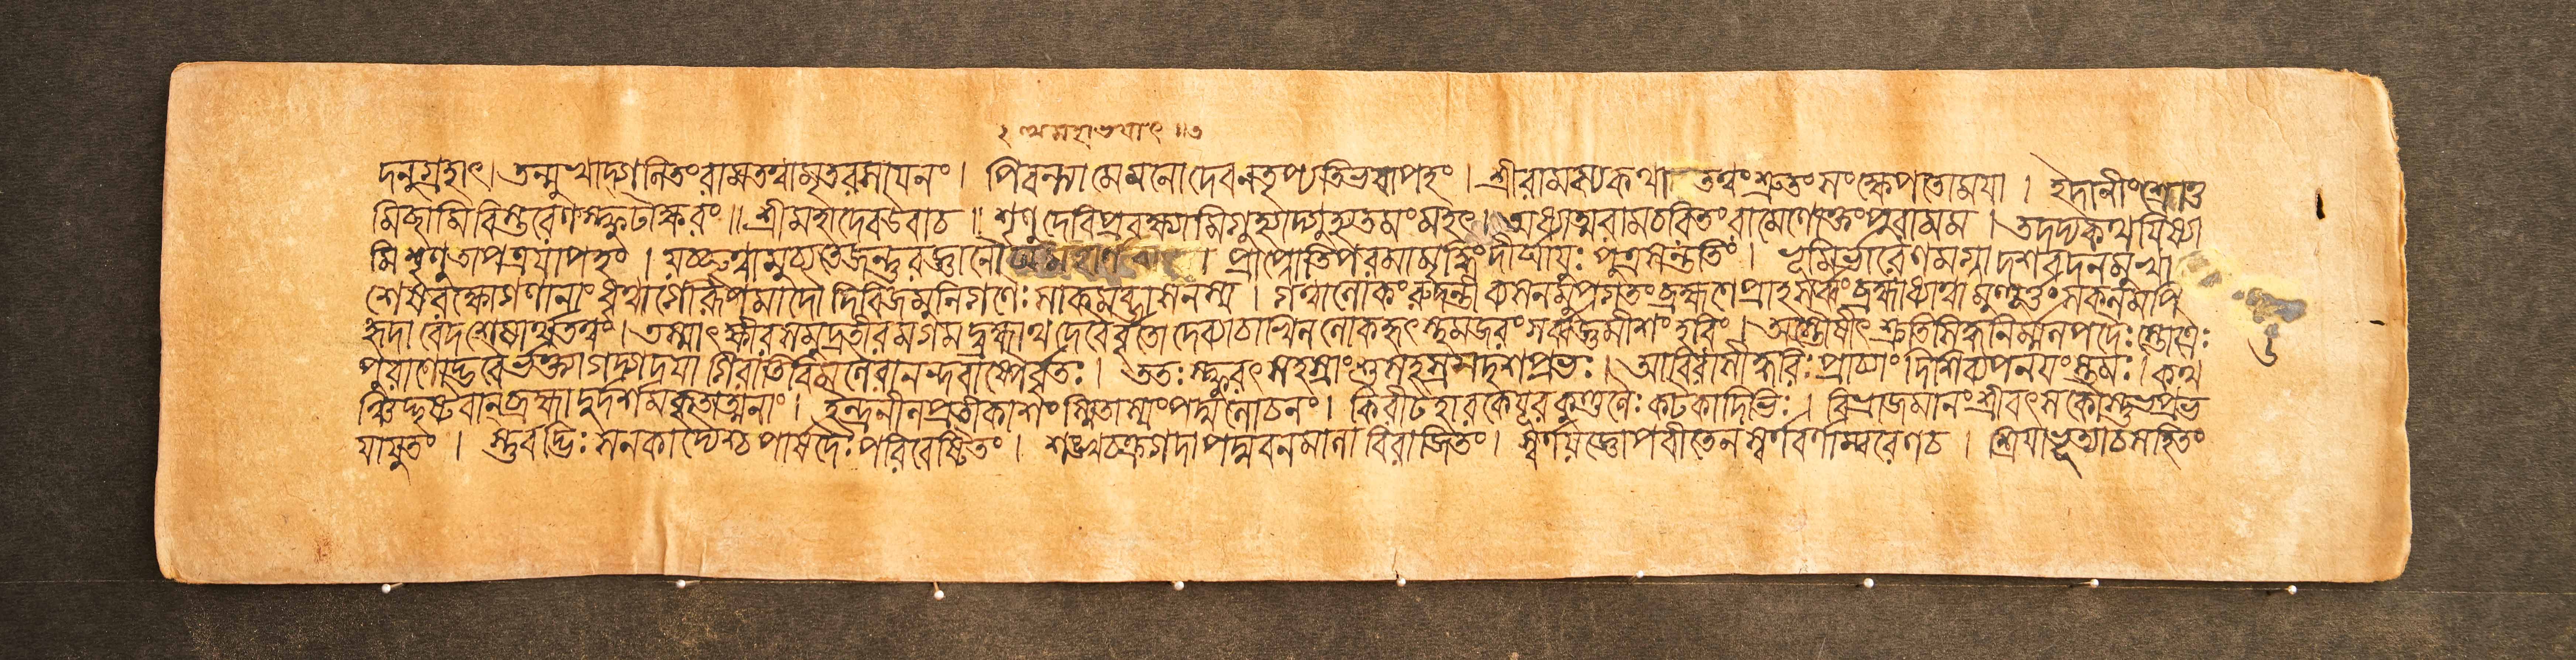 ২ থ্যমহাভয়াৎ ॥ ৩
দনুগ্রহাৎ। ত্বন্মুখাদ্গলিতং রামতত্ত্বামৃতরসায়নং। পিবন্ত্যা মে মনো দেব ন তৃপ্যতি ভবাপহং। শ্রীরামস্য কথা তত্ত্বং শ্রুতং সংক্ষেপতো ময়া। ইদানীং শ্রোতু
মিচ্ছামি বিস্তরেণ স্ফুটাক্ষরং॥ শ্রীমহাদেব উবাচ॥ শৃণু দেবি প্রবক্ষ্যামি গুহ্যাদ্গুহ্যতমং মহৎ। অধ্যাত্মরামচরিতং রামেণোক্তং পুরা মম। তদদ্য কথয়িষ্যা
মি শৃণু তাপত্রয়াপহং। যচ্ছ্রুত্বা মুচ্যতে জন্তুরজ্ঞানো। প্রাপ্নোতি পরমামৃদ্ধিং দীর্ঘায়ুঃ পুত্রসন্ততিং। ভূমির্ভারেণ মগ্না দশবদনমুখা
শেষরক্ষোগণানাং ধৃত্বা গোরূপমাদৌ দিবিজমুনিগণৈঃ সাকমব্জাসনস্য। গত্বা লোকং রুদন্তী ব্যসনমুপগতং ব্রহ্মণে প্রাহ সর্ব্বং ব্রহ্মা ধ্যাত্বা মুহূর্ত্তং সকলমপি
হৃদা বেদশেষার্থতত্ত্বং। তস্মাৎ ক্ষীরসমুদ্রতীরমগমদ্ব্রহ্মাথ দেবৈর্বৃতো দেব্যা চাখিললোকহৃৎস্থমজরং সর্ব্বজ্ঞমীশং হরিং। অস্তৌষীৎ শ্রুতিসিদ্ধনির্ম্মলপদৈঃ স্তোত্রৈঃ
পুরাণোদ্ভবৈর্ভক্ত্যা গদ্গদয়া গিরাতিবিমলৈরানন্দবাষ্পৈর্বৃতঃ। ততঃ স্ফুরৎসহস্রাংশুসহস্রসদৃশপ্রভঃ। আবিরাসীদ্ধরিঃ প্রাচ্যাং দিশি ব্যপনয়ংস্তমঃ। কথ
ঞ্চিদ্দৃষ্টবান্ ব্রহ্মা দুর্দর্শমকৃতাত্মনাং। ইন্দ্রনীলপ্রতীকাশং স্মিতাস্যং পদ্মলোচনং। কিরীটহারকেয়ূরকুণ্ডলৈঃ কটকাদিভিঃ। বিভ্রাজমানং শ্রীবৎসকৌস্তুভপ্রভ
য়াযুতং। স্তুবদ্ভিঃ সনকাদ্যৈশ্চ পার্ষদৈঃ পরিবেষ্টিতং। শঙ্খচক্রগদাপদ্মবনমালাবিরাজিতং। স্বর্ণযজ্ঞোপবীতেন স্বর্ণবর্ণাম্বরেণ চ। শ্রিয়া ভূম্যা চ সহিতং